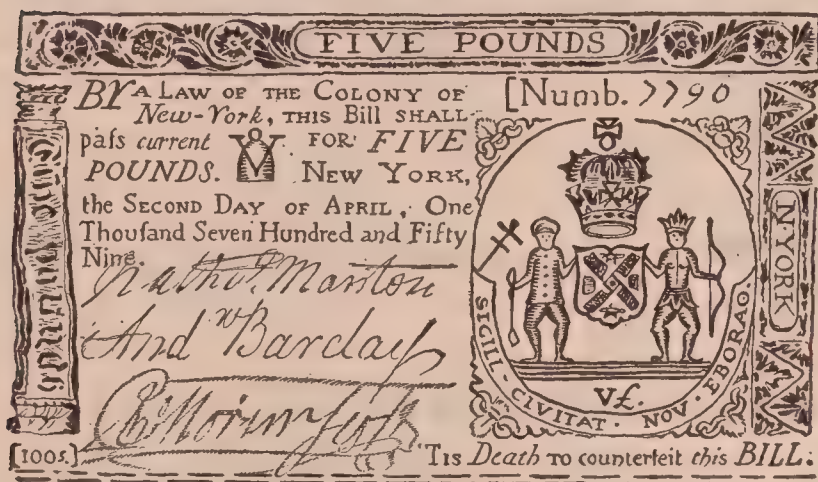 FIVE POUNDS
BY A LAW OF THE COLONY OF
New-York, THIS Bill SHALL
paſs current FOR FIVE
POUNDS. NEW YORK,
the SECOND DAY OF APRIL, One
Thouſand Seven Hundred and Fifty
Nine.
Nathl. Marston
Andw Barclay
[1005.]
[Numb. 7790
SIGILL · CIVITAT · NOV · EBORAC.
V£.
N·YORK
'TIS Death TO counterfeit this BILL.